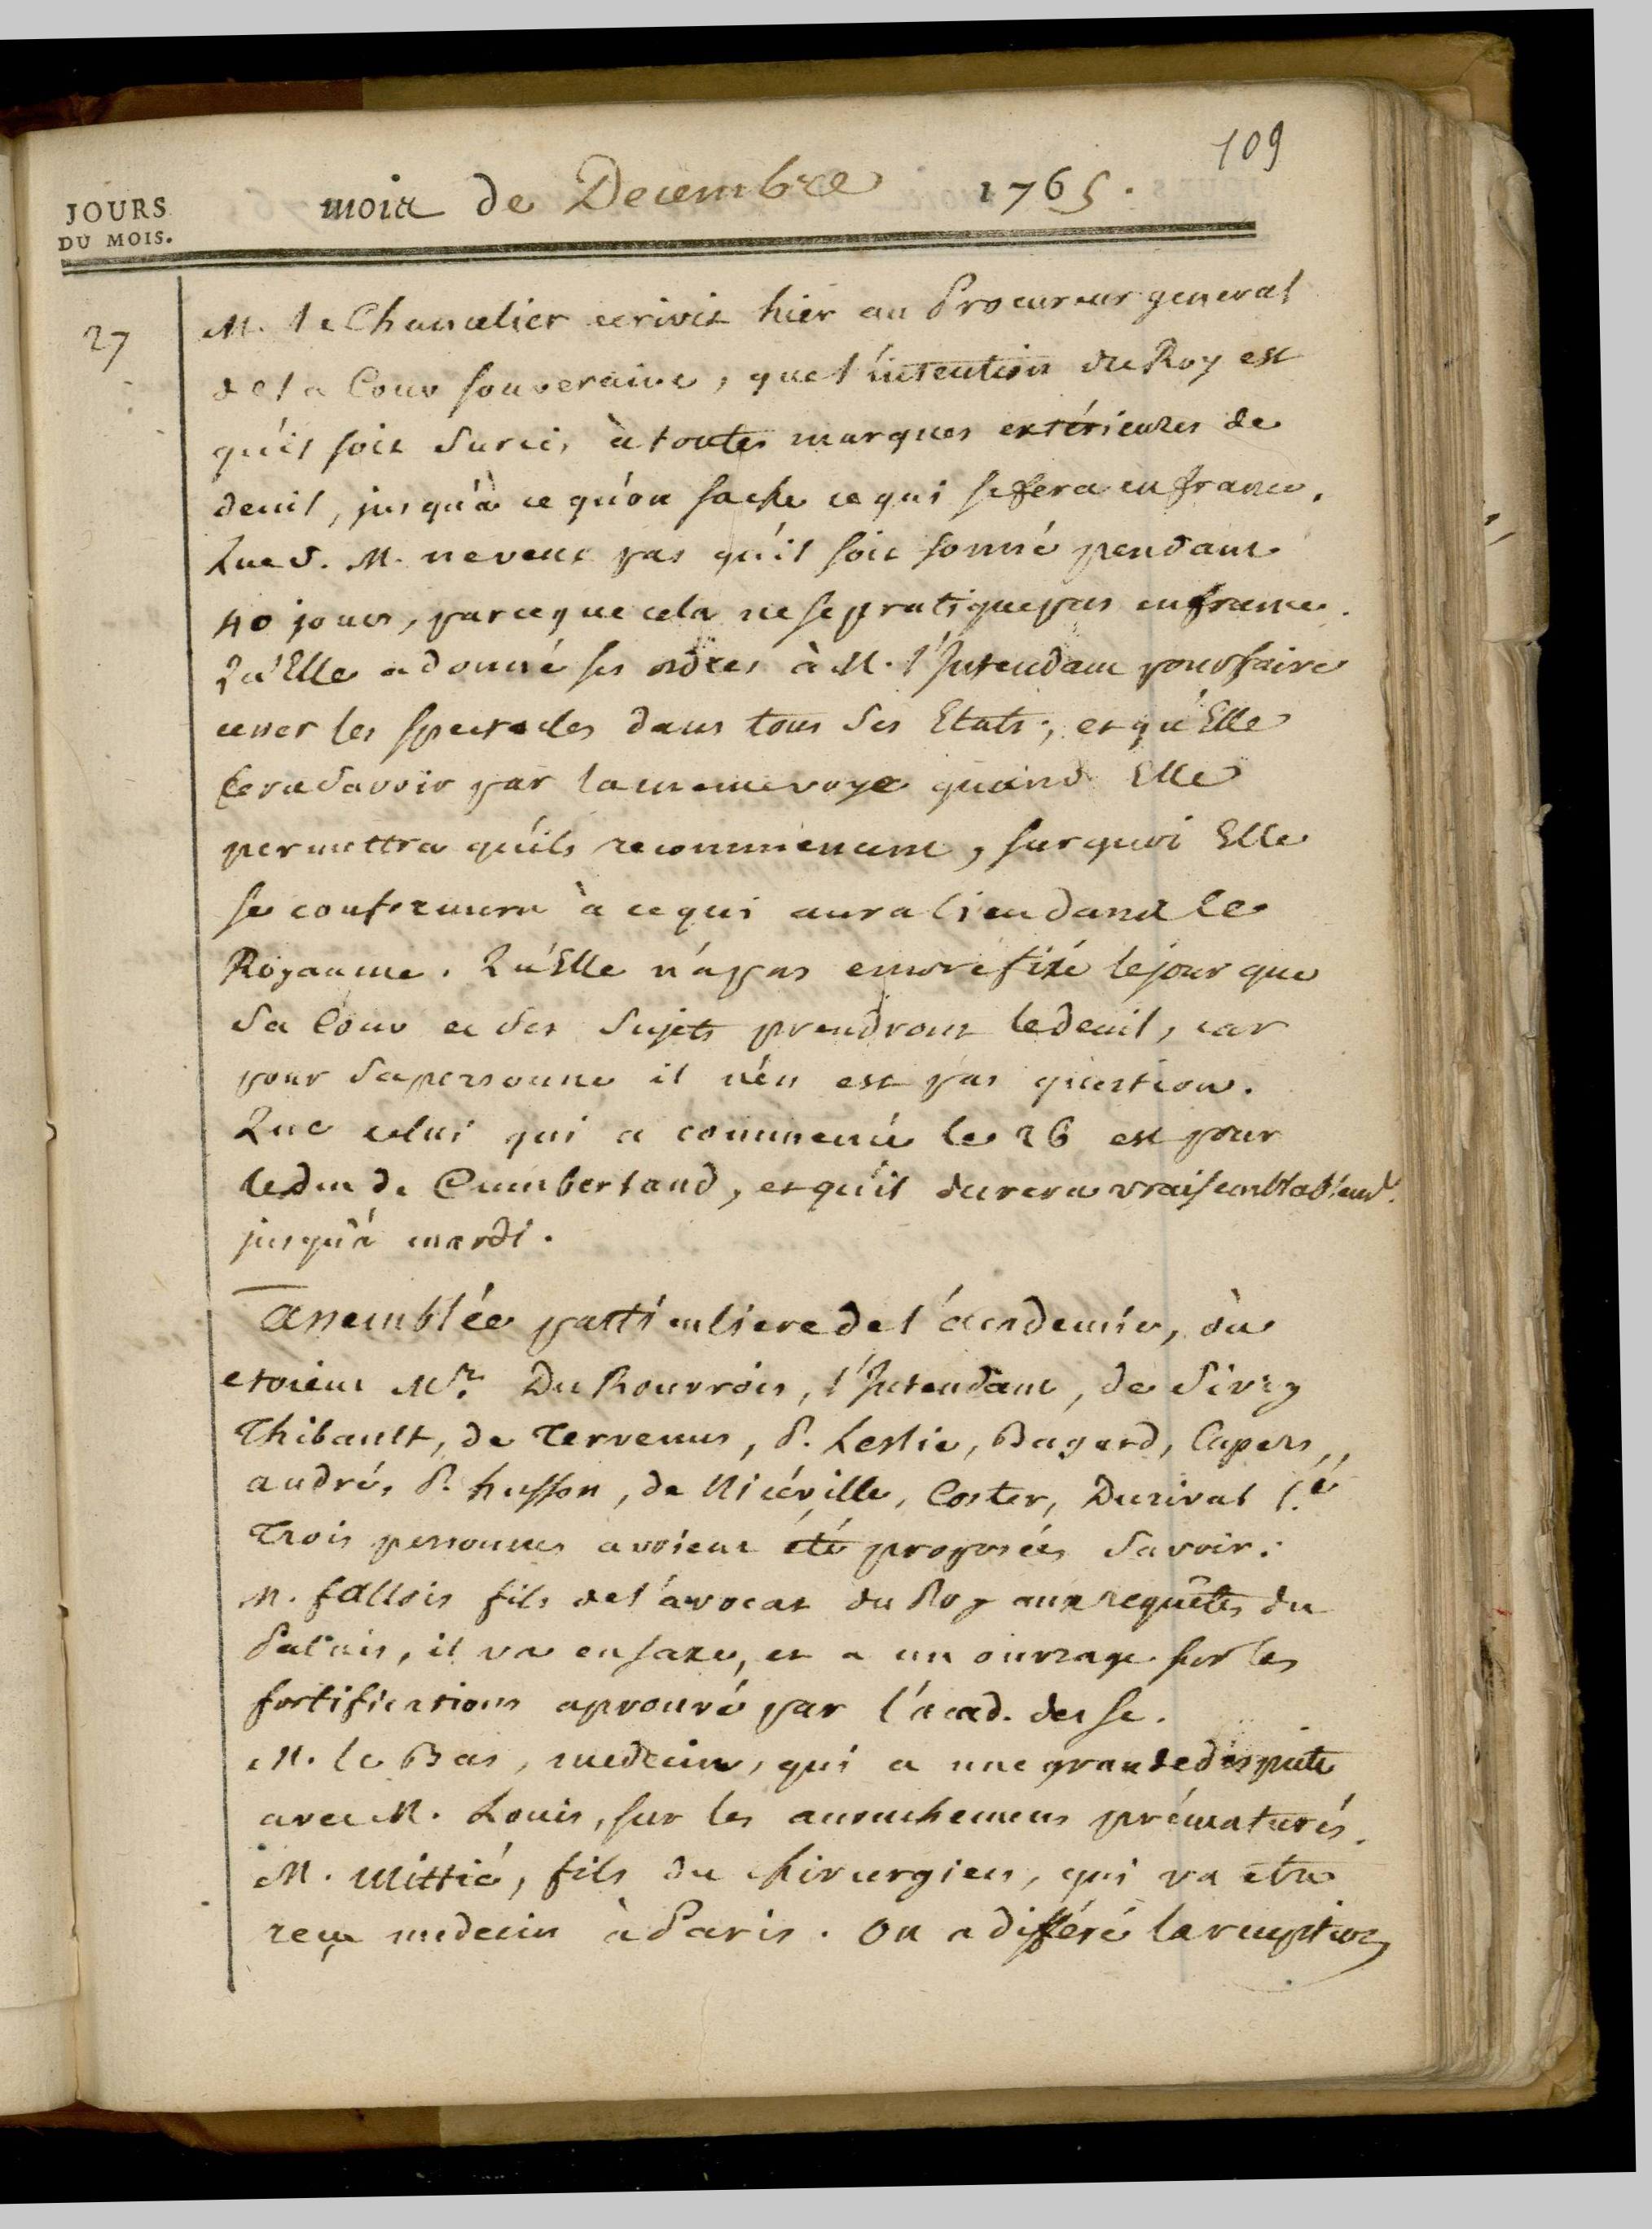 109
JOURS
DU MOIS.
mois de Decembre 1765.
27
M. le Chancelier ecrivit hier au Procureur general
de la Cour souveraine, que l'intention du Roy est
qu'il soit surcis à toutes marques extérieures de
deuil, jusqu'à ce qu'on sache ce qui se fera en france.
Que S. M. ne veut pas qu'il soit sonné pendant
40 jours, parceque cela ne se pratique pas en france.
Qu'Elle a donné ses ordres à M. l'Intendant pour faire
cesser les spectacles dans tous ses Etats; et qu'Elle
fera savoir par la meme voye quand Elle
permettra qu'ils recommencent, surquoi Elle
se conformera à ce qui aura lieu dans le
Royaume. Qu'Elle n'a pas encore fixé le jour que
sa Cour et ses Sujets prendront le deuil, car
pour sa personne il n'en est pas question.
Que celui qui a commencé le 26 est pour
le duc de Cumberland, et qu'il durera vraisemblablemt.
jusqu'à mardi.
assemblée particuliere de l'académie, où
etoient Mrs. Du Rouvrois, l'Intendant, de Sivry
Thibault, de Tervenus, P. Leslie, Bagard, Cupers,
andré, P. husson, de Nicéville, Coster, Durival l'é
Trois personnes avoient été proposées savoir:
M. fallois fils de l'avocat du Roy aux requêtes du
Palais, il va en saxe, et a un ouvrage sur les
fortifications aprouvé par l'acad. des sc.
M. le Bas, medecin, qui a une grande dispute
avec M. Louis, sur les accouchemens prématurés.
M. Mittié, fils du chirurgien, qui va etre
reçu medecin à Paris. On a différé la reception